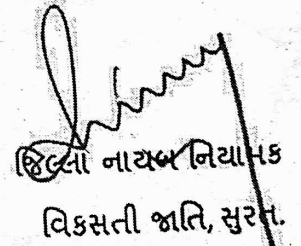 જિલ્લા નાયબ નિયામક
વિકસતી જાતિ, સુરત.